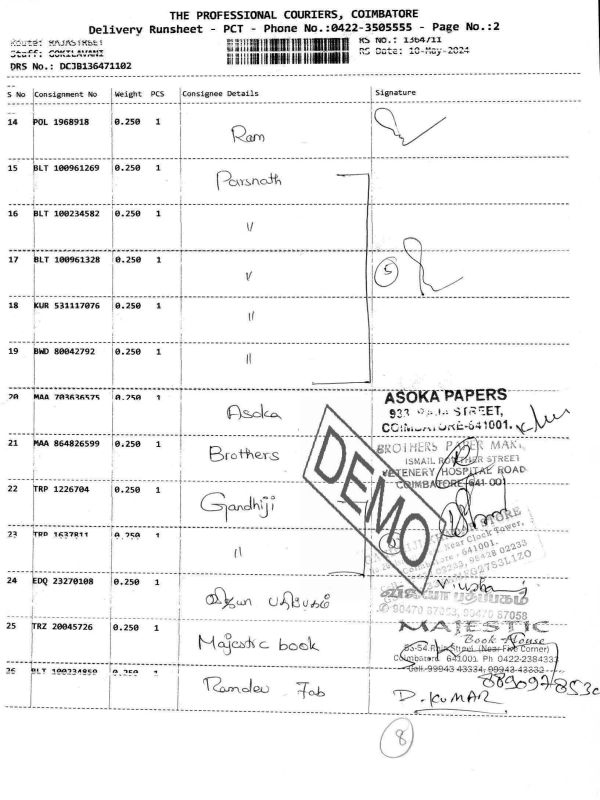 THE PROFESSIONAL COURIERS, COIMBATORE
Delivery Runsheet - PCT - Phone No.:0422-3505555 - Page No.:2
Route: RAJASTREET RS No.: 1364711
Staff: GOKILAVANI RS Date: 10-May-2024
DRS No.: DCJB136471102
S No Consignment No Weight PCS Consignee Details Signature
14 POL 1968918 0.250 1 Ram
15 BLT 100961269 0.250 1 Parsnath
16 BLT 100234582 0.250 1 "
17 BLT 100961328 0.250 1 " 5
18 KUR 531117076 0.250 1 "
19 BWD 80042792 0.250 1 "
20 MAA 703636575 0.250 1 Asoka
ASOKA PAPERS
933, RAJA STREET,
COIMBATORE-641001.
21 MAA 864826599 0.250 1 Brothers
BROTHERS PAPER MART
ISMAIL ROWTHER STREET
VETENERY HOSPITAL ROAD
COIMBATORE 641 001
DEMO
22 TRP 1226704 0.250 1 Gandhiji
23 TRP 1637811 0.250 1 "
STORE
Near Clock Tower,
Coimbatore, 641001.
98428 02233
24 EDQ 23270108 0.250 1 விஜயா பதிப்பகம்
விஜயா பதிப்பகம்
90470 87053, 90470 87058
25 TRZ 20045726 0.250 1 Majestic book
MAJESTIC
Book House
53-54, Raja Street, (Near Five Corner)
Coimbatore 641001. Ph 0422-2384333
Cell: 99943 43334, 99943 43332
26 BLT 100234868 0.250 1 Ramdev Fab
D. KUMAR
8